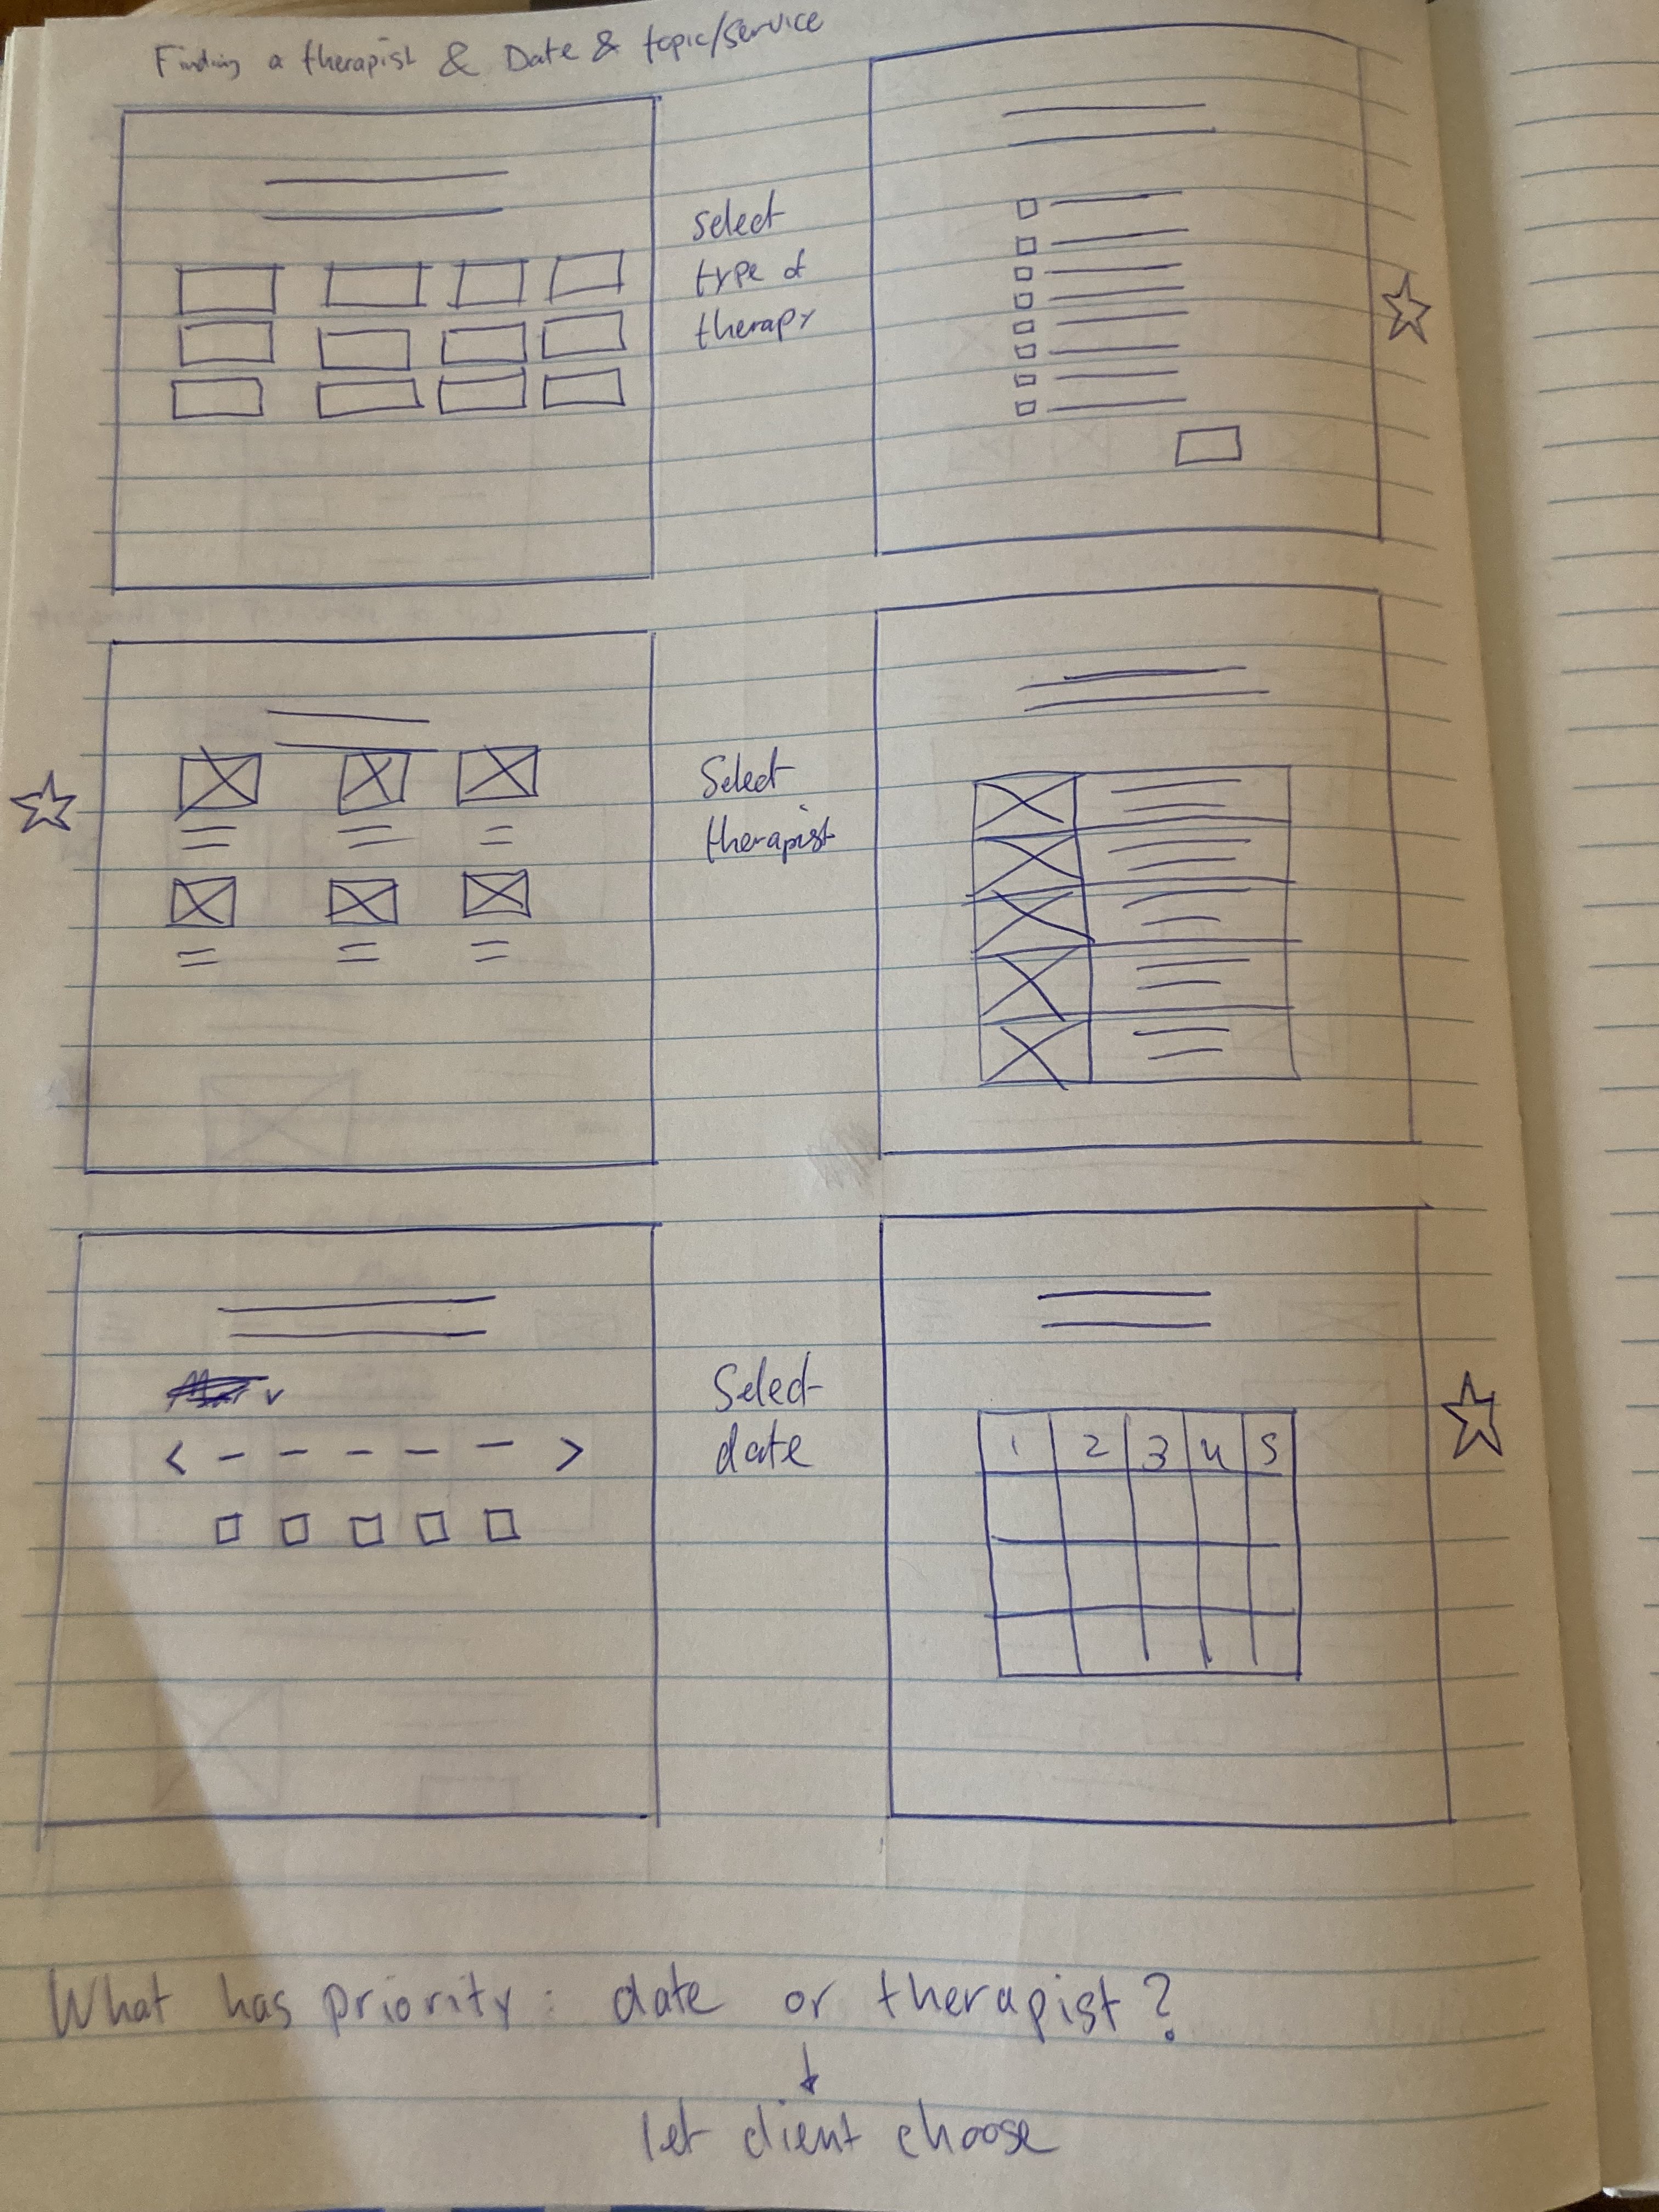 Finding a therapist & Date & topic/service
select
type of
therapy
Select
therapist
Select
date
1 2 3 4 5
What has priority: date or therapist?
let client choose